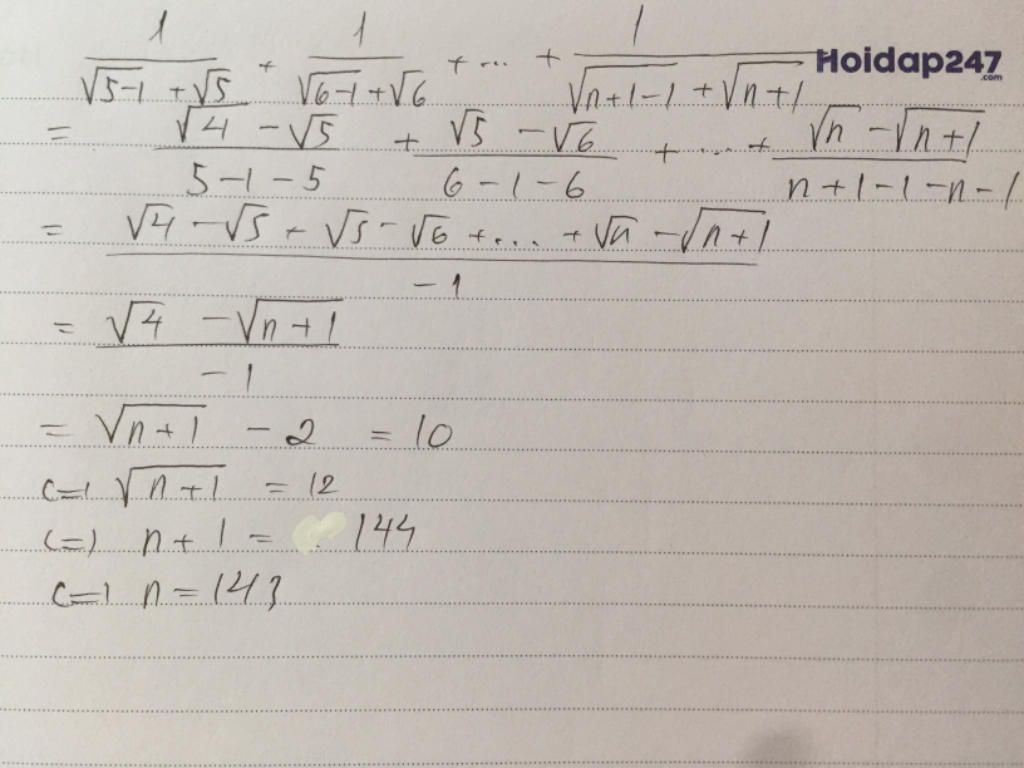 1/(√(5-1) + √5) + 1/(√(6-1) + √6) + ... + 1/(√(n+1-1) + √(n+1))
Hoidap247.com
= (√4 - √5)/(5-1-5) + (√5 - √6)/(6-1-6) + ... + (√n - √(n+1))/(n+1-1-n-1)
= (√4 - √5 + √5 - √6 + ... + √n - √(n+1))/(-1)
= (√4 - √(n+1))/(-1)
= √(n+1) - 2 = 10
(=) √(n+1) = 12
(=) n+1 = 144
(=) n = 143